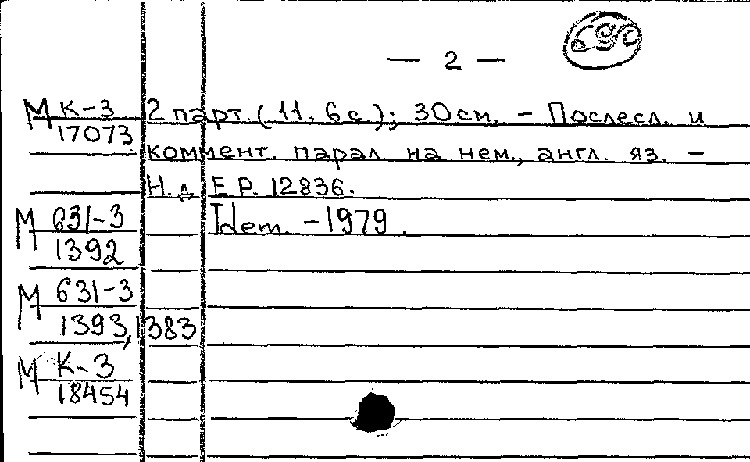 — 2 —
690
М К-3 2 парт. (11, 6 с.); 30 см. – Послесл. и
17073 коммент. парал. на нем., англ. яз. –
Н. д. E.P. 12836.
М 631-3 Idem. – 1979.
1392
М 631-3
1393, 1383
М К-3
18454